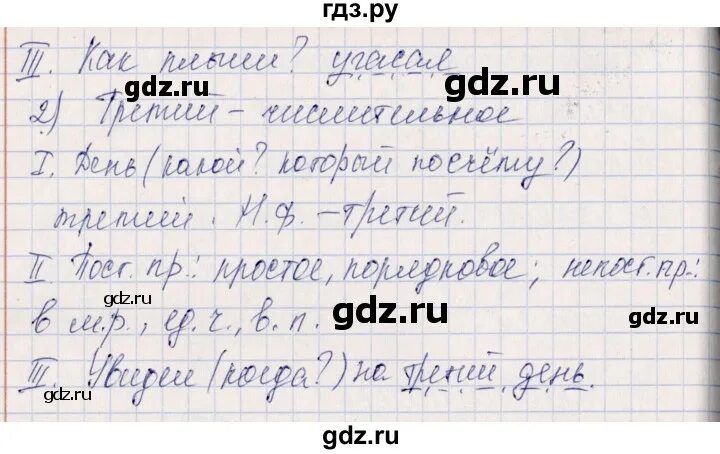 гдз.ру
III. Как плыли? угасая
gdz.ru gdz.ru
2) Третий – числительное
I. День (какой? который по счёту?)
третий. Н.ф. – третий.
gdz.ru
II. Пост. пр.: простое, порядковое; непост. пр.:
gdz.ru gdz.ru gdz.ru
в м.р., ед.ч., в.п.
III. Увидел (когда?) на третий день.
gdz.ru gdz.ru
gdz.ru